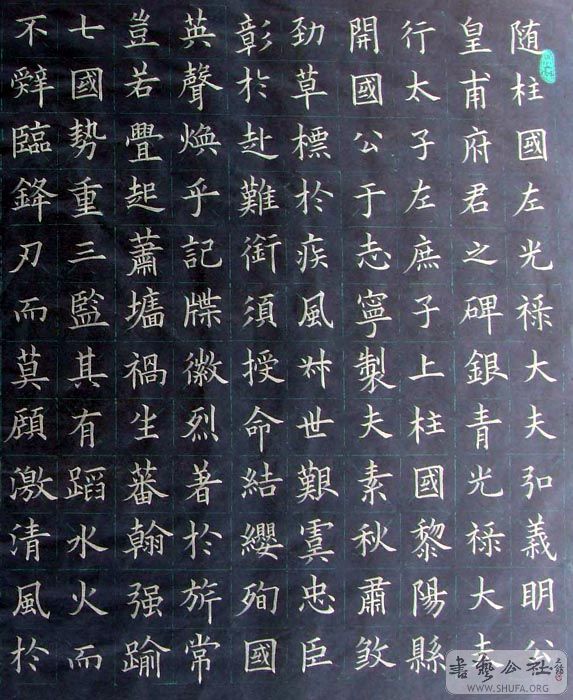 随柱國左光祿大夫弘義明公
皇甫府君之碑銀青光祿大夫
行太子左庶子上柱國黎陽縣
開國公于志寧製夫素秋肅煞
勁草標於疾風叔世艱虞忠臣
彰於赴難銜須授命結纓殉國
英聲煥乎記牒徽烈著於旂常
豈若舋起蕭墻禍生蕃翰强踰
七國勢重三監其有蹈水火而
不辭臨鋒刃而莫顧激清風於
書藝公社
WWW.SHUFA.ORG